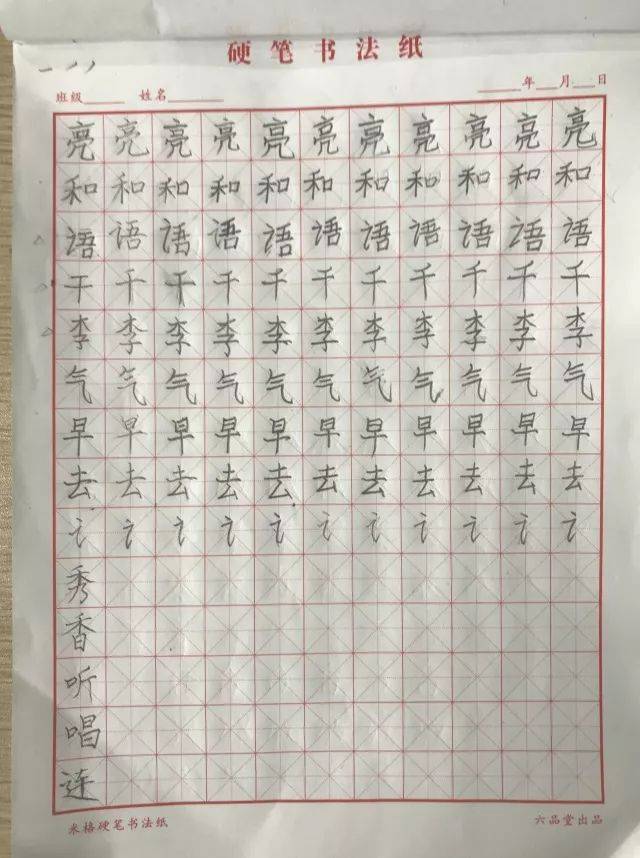 硬笔书法纸
班级 姓名 年 月 日
亮亮亮亮亮亮亮亮亮亮亮
和和和和和和和和和和和
语语语语语语语语语语语
千千千千千千千千千千千
李李李李李李李李李李李
气气气气气气气气气气气
早早早早早早早早早早早
去去去去去去去去去去去
讠讠讠讠讠讠讠讠讠讠讠
秀
香
听
唱
连
米格硬笔书法纸 六品堂出品